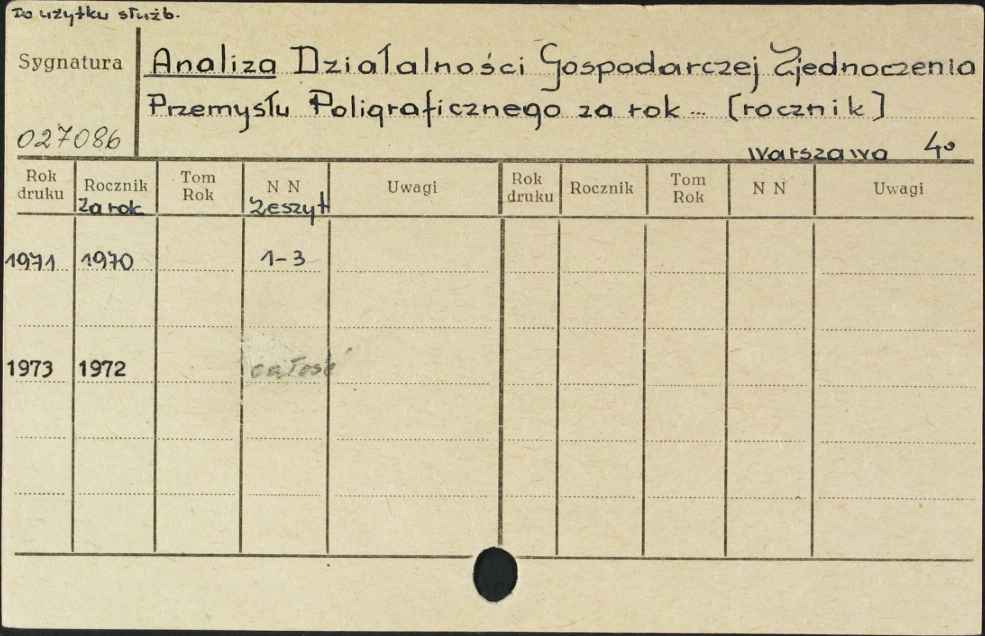 Do użytku służb.
Sygnatura
Analiza Działalności Gospodarczej Zjednoczenia
Przemysłu Poligraficznego za rok ... [rocznik]
027086
Warszawa 4°
Rok druku Rocznik Tom Rok N N Uwagi Rok druku Rocznik Tom Rok N N Uwagi
Za rok Zeszyt
1971 1970 1-3
1973 1972 całość